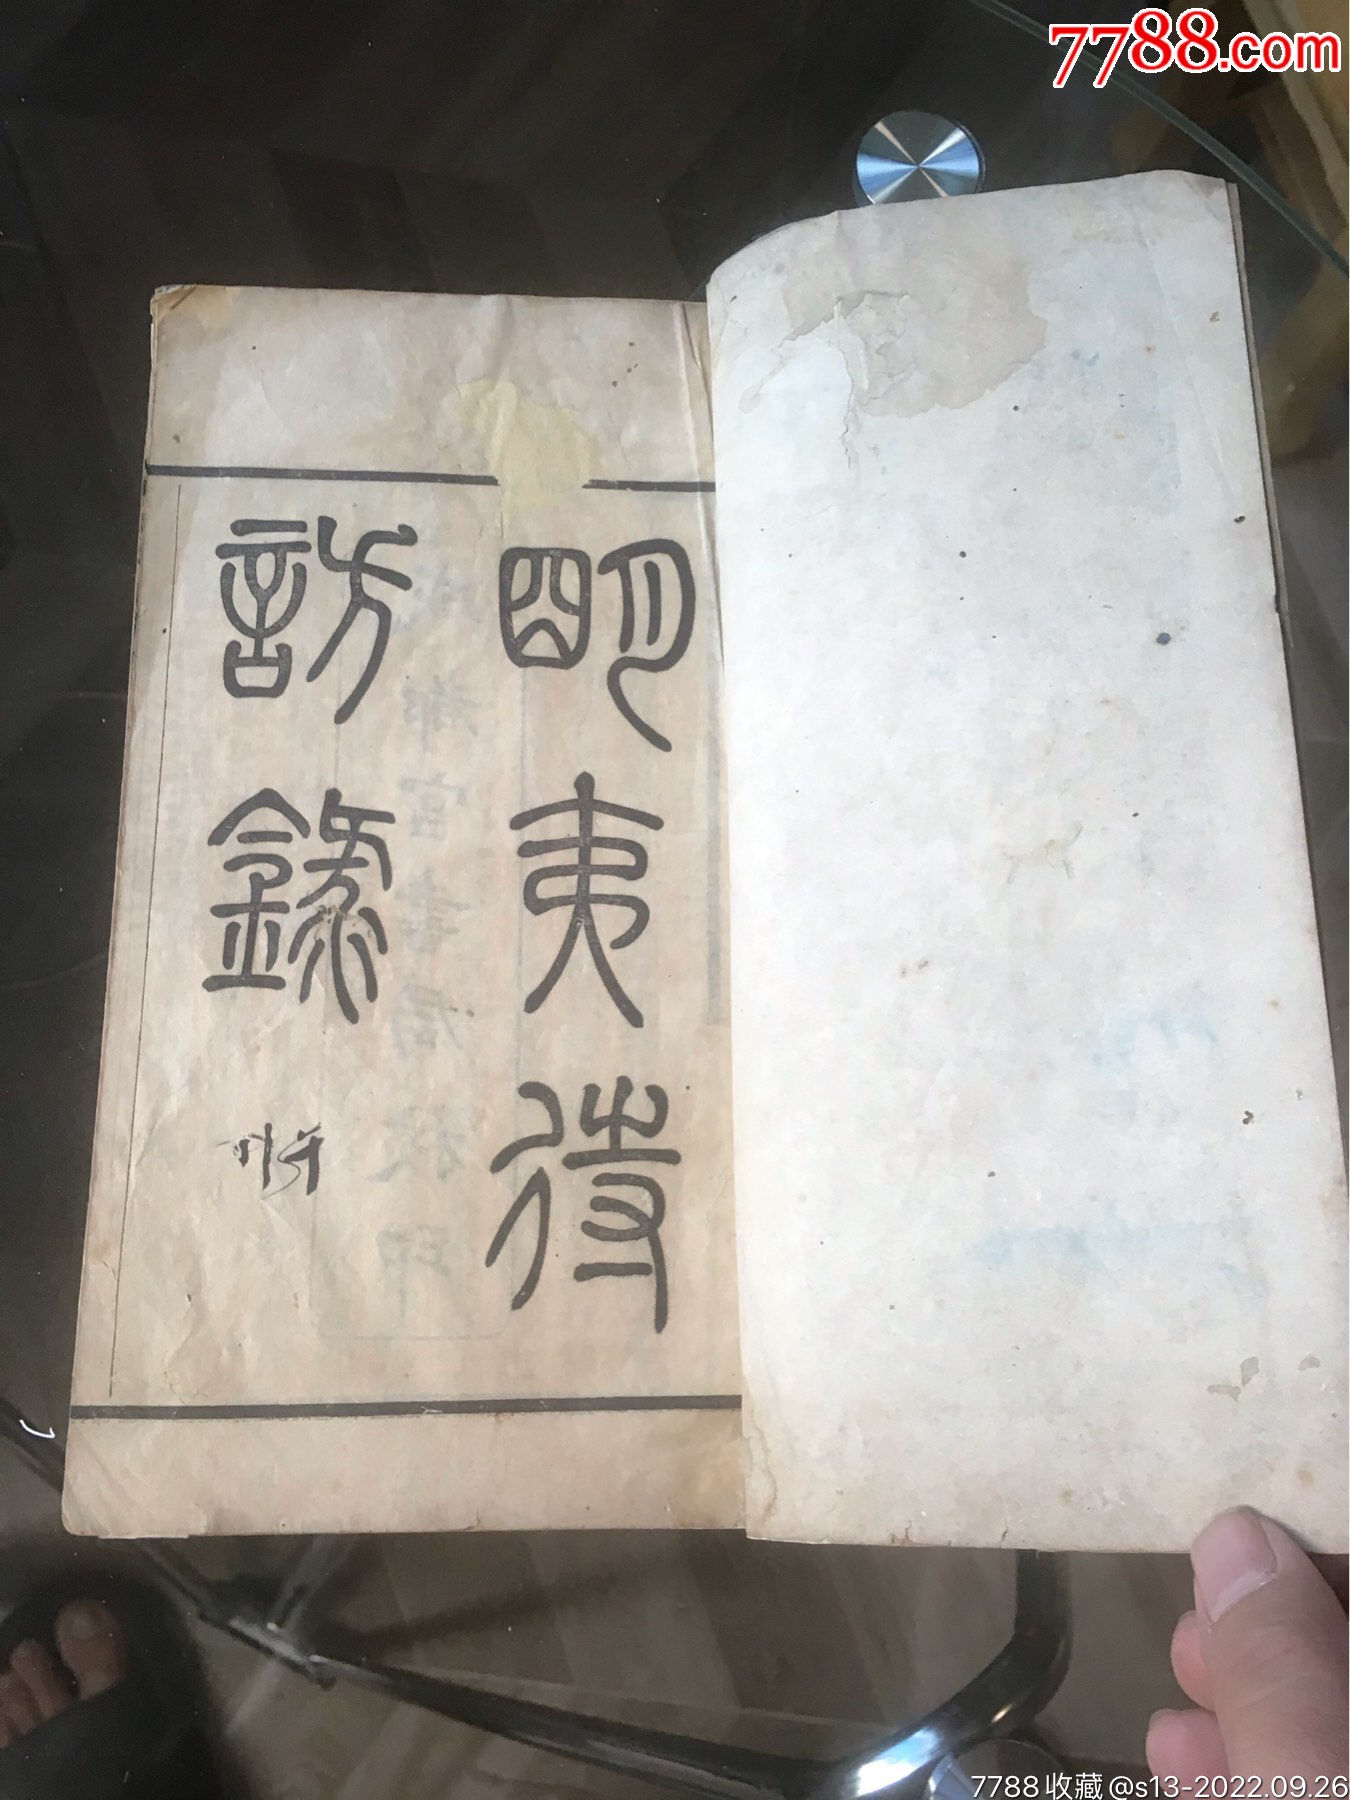 7788.com
明夷待
訪錄
成都官書局校印
7788收藏@s13-2022.09.26